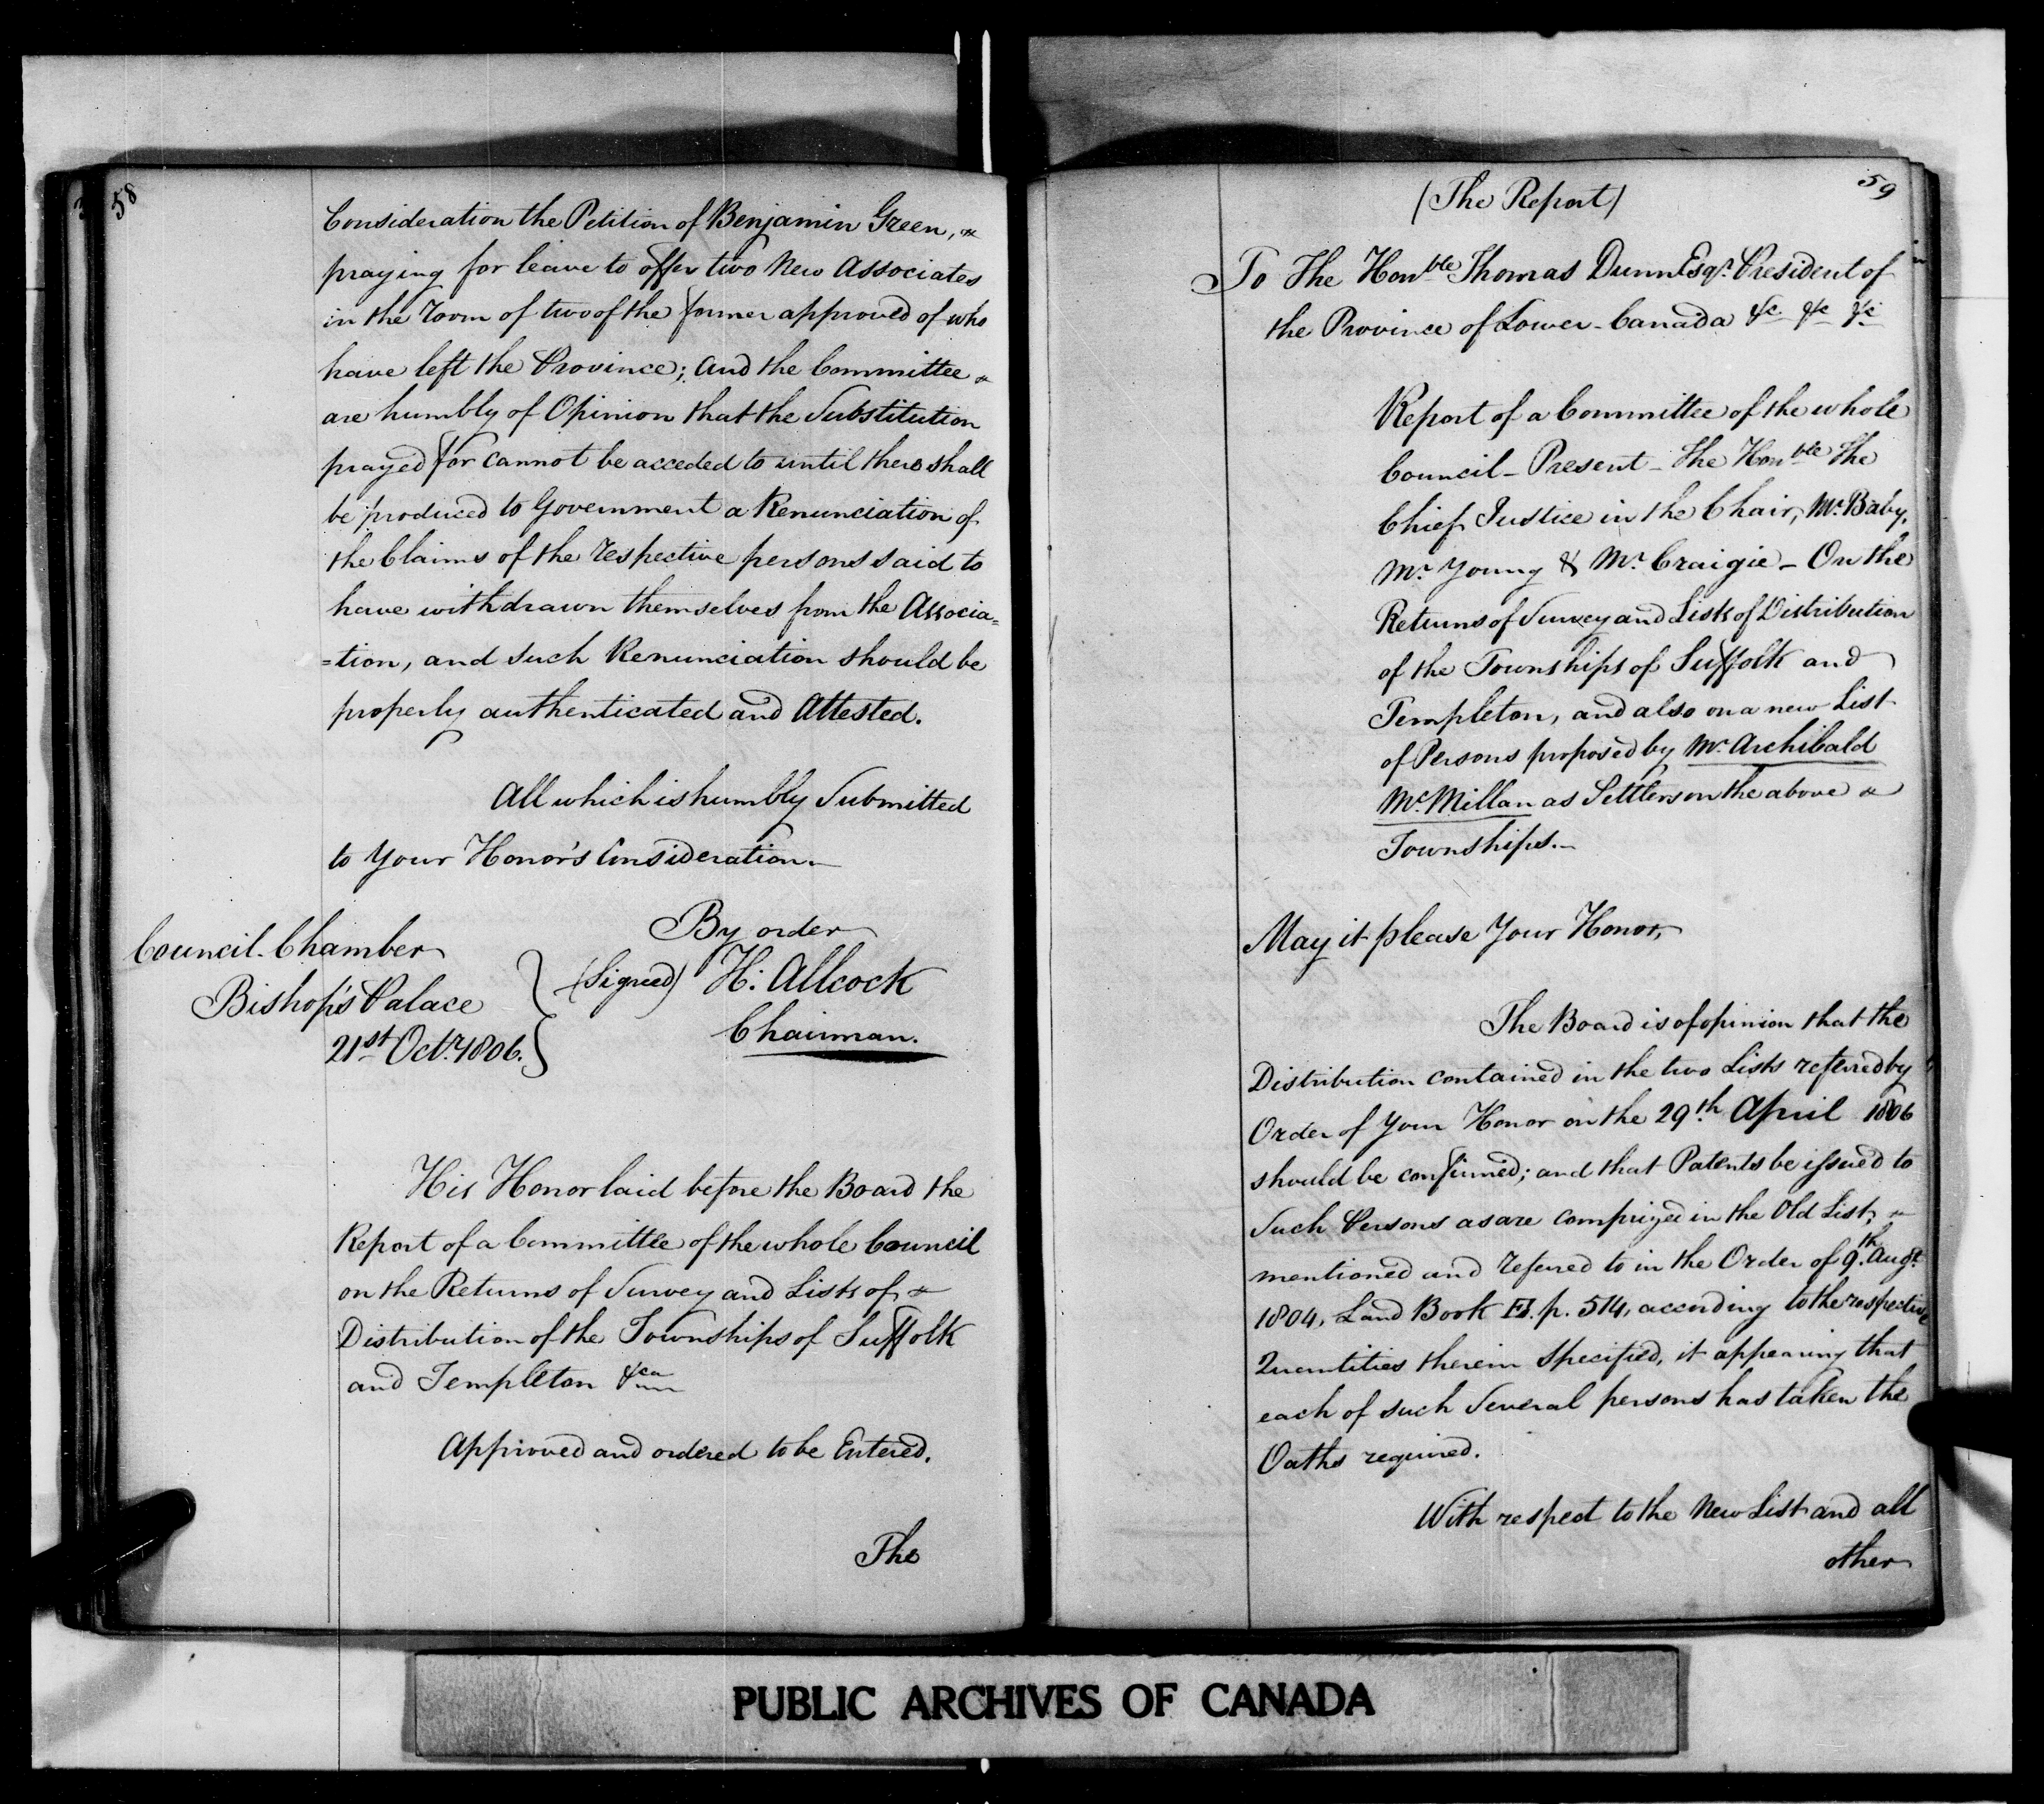 58
Consideration the Petition of Benjamin Green,
praying for leave to offer two New Associates
in the Room of two of the former approved of who
have left the Province; and the Committee
are humbly of Opinion that the Substitution
prayed for cannot be acceded to until there shall
be produced to Government a Renunciation of
the Claims of the respective persons said to
have withdrawn themselves from the Associa=
=tion, and such Renunciation should be
properly authenticated and Attested.
All which is humbly Submitted
to Your Honor's Consideration.
By order
Council Chamber
Bishop's Palace
21st Octr. 1806.
(Signed) H: Allcock
Chairman.
His Honor laid before the Board the
Report of a Committee of the whole Council
on the Returns of Survey and Lists of
Distribution of the Townships of Suffolk
and Templeton &ca
Approved and ordered to be Entered.
The
59
(The Report)
To The Honble Thomas Dunn Esqr. President of
the Province of Lower-Canada &c &c &c
Report of a Committee of the whole
Council - Present - The Honble The
Chief Justice in the Chair, Mr. Baby,
Mr. Young & Mr. Craigie - On the
Returns of Survey and Lists of Distribution
of the Townships of Suffolk and
Templeton, and also on a new List
of Persons proposed by Mr. Archibald
McMillan as Settlers on the above
Townships.-
May it please Your Honor,
The Board is of opinion that the
Distribution contained in the two Lists referred by
Order of Your Honor on the 29th April 1806
should be confirmed; and that Patents be issued to
Such Persons as are comprized in the Old List,
mentioned and referred to in the Order of 9th. Augt.
1804, Land Book p. 514, according to the respective
Quantities therein Specified, it appearing that
each of such Several persons has taken the
Oaths required.
With respect to the New List and all
other
PUBLIC ARCHIVES OF CANADA